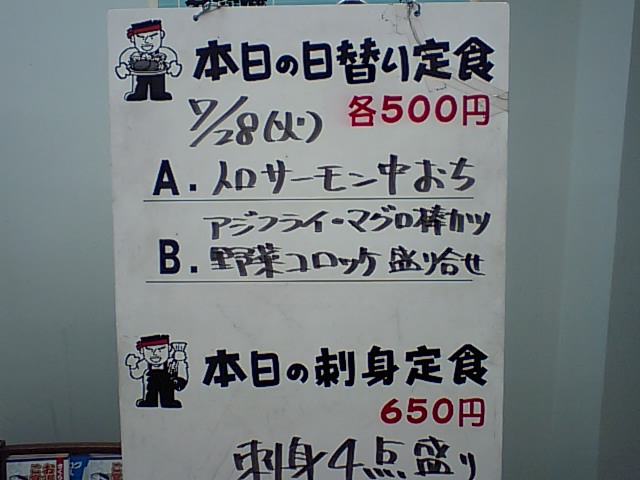 本日の日替り定食
各500円
7/28(火)
A. トロサーモン中おち
アジフライ・マグロ棒カツ
B. 野菜コロッケ盛り合せ
本日の刺身定食
650円
刺身4点盛り